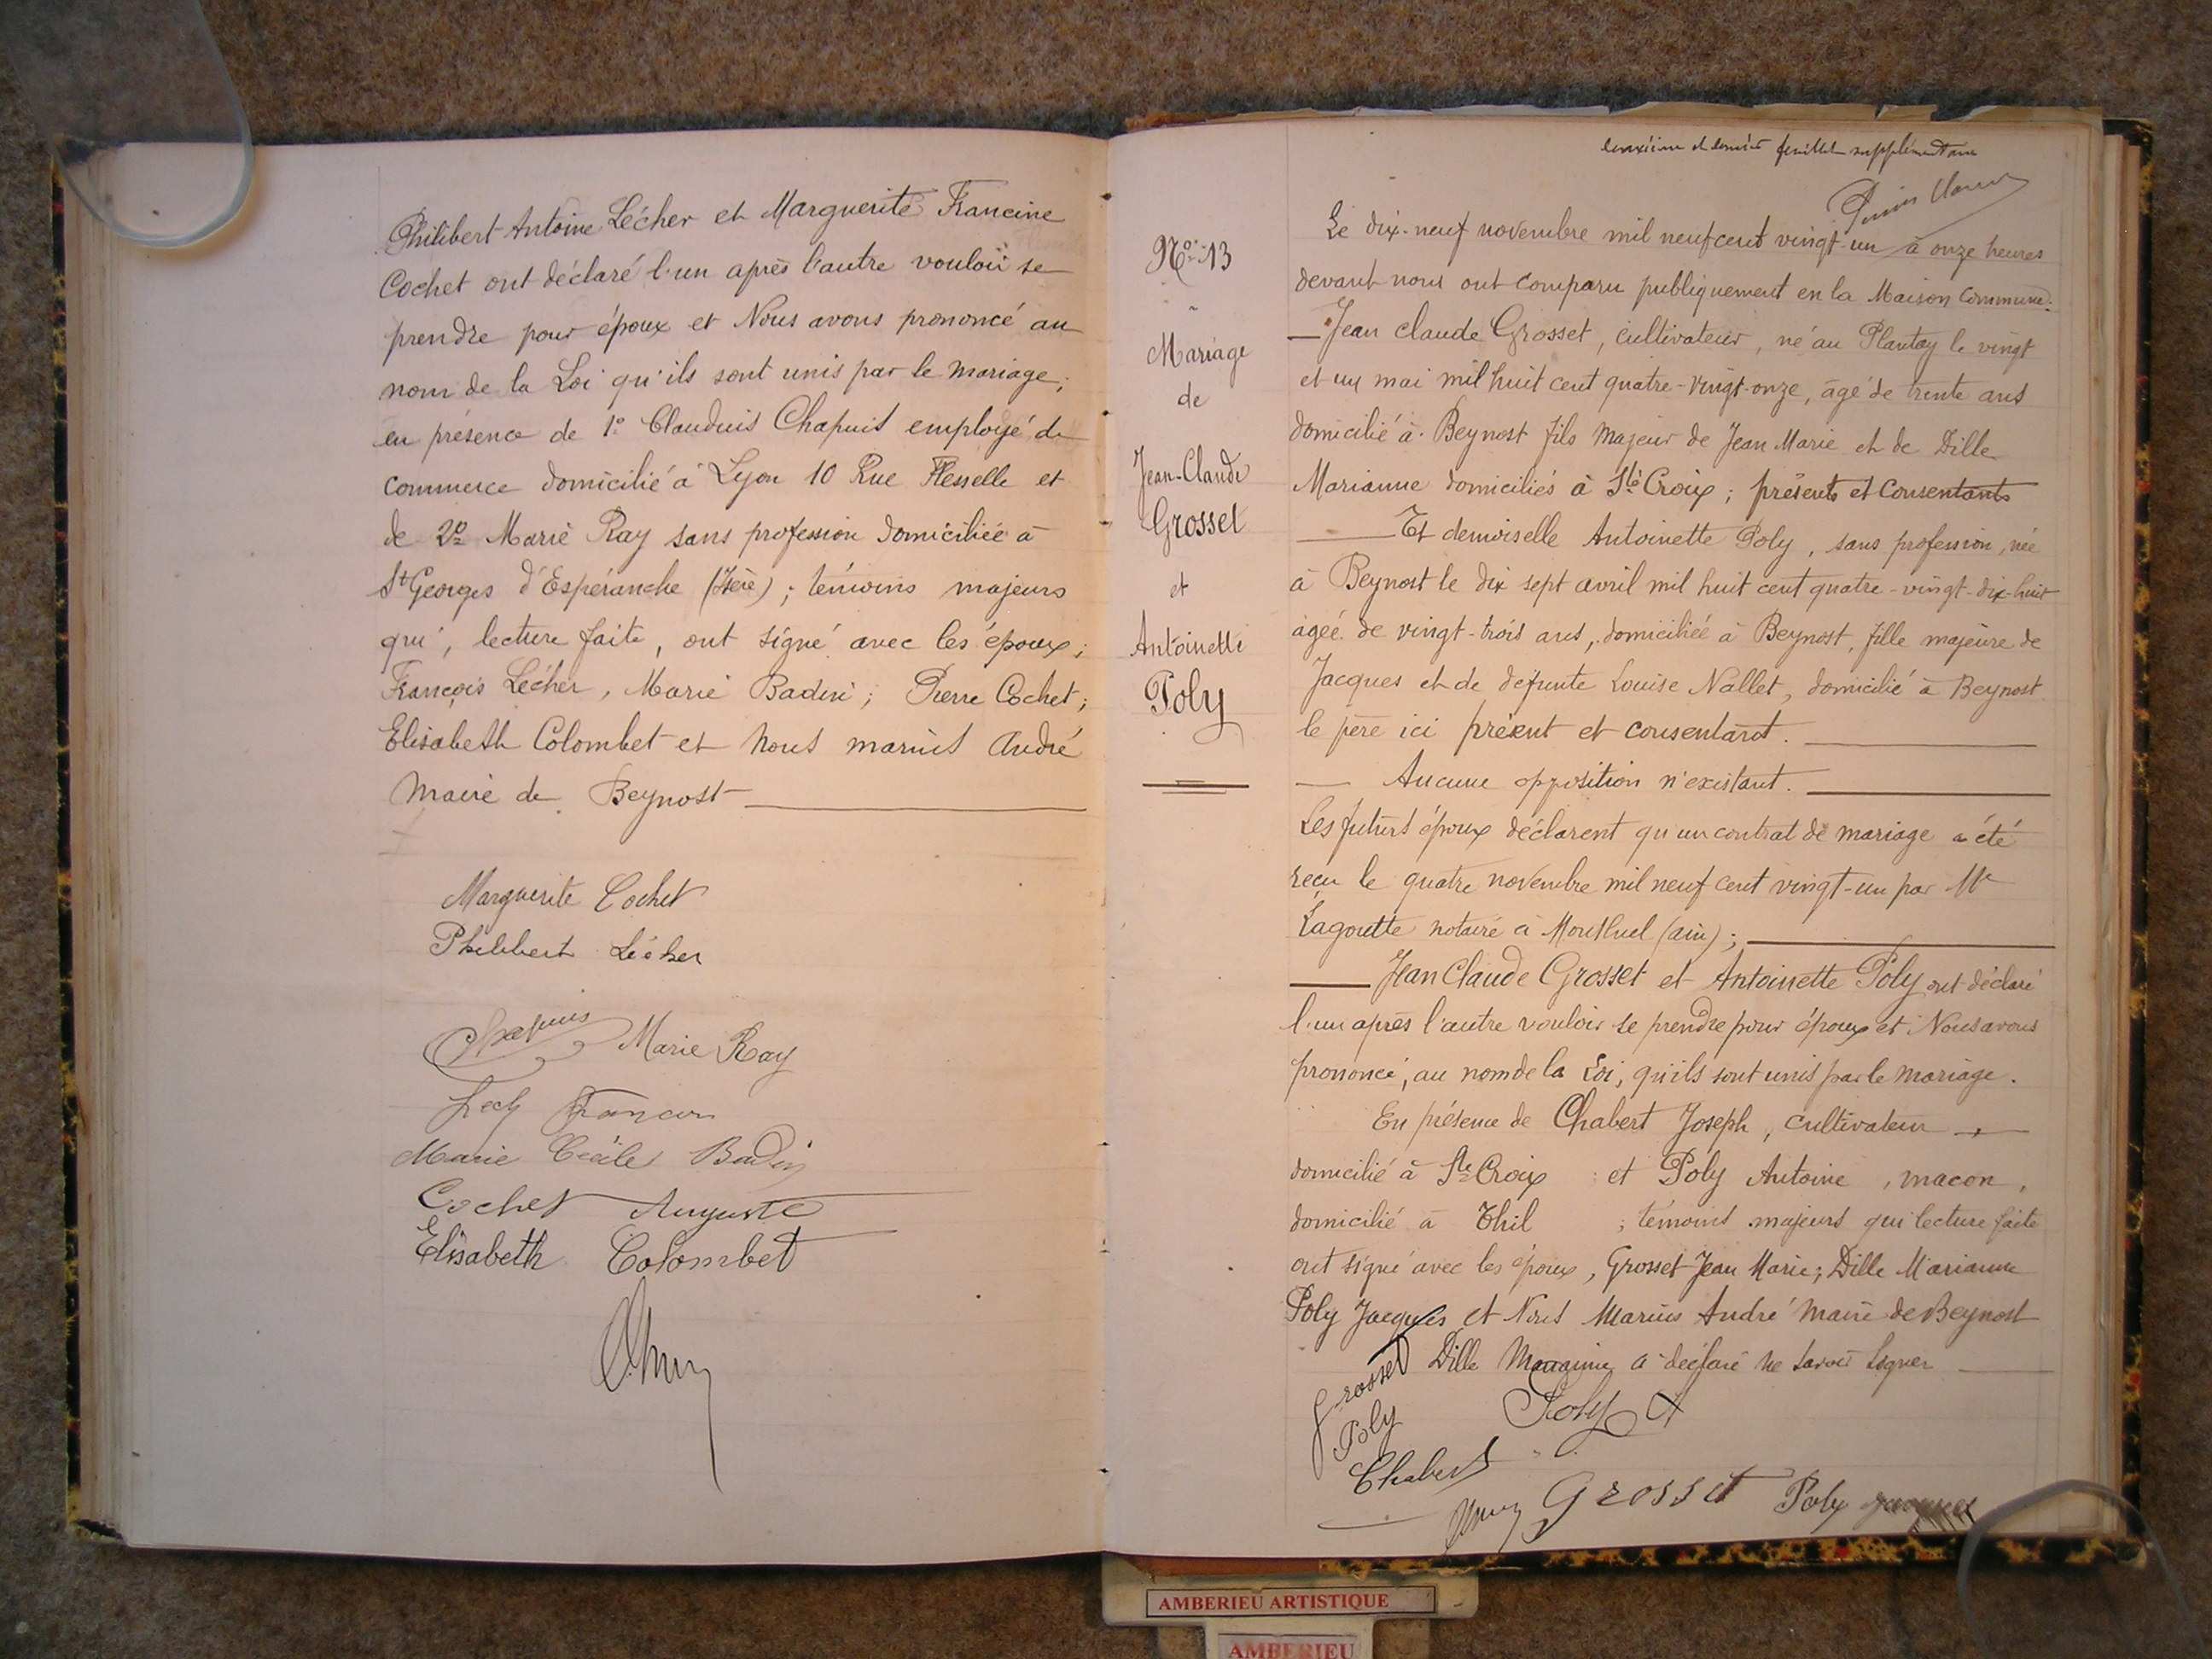 Philibert Antoine Lécher et Marguerite Francine
Cochet ont déclaré l'un après l'autre vouloir se
prendre pour époux et Nous avons prononcé au
nom de la Loi qu'ils sont unis par le mariage;
en présence de 1º Claudius Chapuis employé de
commerce domicilié à Lyon 10 Rue Flesselle et
de 2º Marie Ray sans profession domiciliée à
St Georges d'Espéranche (Isère); témoins majeurs
qui, lecture faite, ont signé avec les époux;
François Lécher, Marie Badin; Pierre Cochet;
Elisabeth Colombet et Nous marius André
Maire de Beynost
Marguerite Cochet
Philibert Lécher
Chapuis Marie Ray
Marie Cécile Badin
Cochet Auguste
Elisabeth Colombet
deuxième et dernier feuillet supplémentaire
Nº 13
Mariage
de
Jean-Claude
Grosset
et
Antoinette
Poly
Le dix-neuf novembre mil neuf cent vingt-un à onze heures
devant nous ont comparu publiquement en la Maison Commune.
Jean Claude Grosset, cultivateur, né au Plantay le vingt
et un mai mil huit cent quatre-vingt-onze, âgé de trente ans
domicilié à Beynost fils majeur de Jean Marie et de Dille
Marianne domiciliés à Ste Croix; présents et consentants
Et demoiselle Antoinette Poly, sans profession, née
à Beynost le dix sept avril mil huit cent quatre-vingt-dix-huit
âgée de vingt-trois ans, domiciliée à Beynost, fille majeure de
Jacques et de défunte Louise Nallet, domicilié à Beynost
le père ici présent et consentant.
Aucune opposition n'existant.
Les futurs époux déclarent qu'un contrat de mariage a été
reçu le quatre novembre mil neuf cent vingt-un par Me
Lagoutte notaire à Montluel (ain);
Jean Claude Grosset et Antoinette Poly ont déclaré
l'un après l'autre vouloir se prendre pour époux et Nous avons
prononcé, au nom de la Loi, qu'ils sont unis par le mariage.
En présence de Chabert Joseph, cultivateur
domicilié à Ste Croix et Poly Antoine, macon,
domicilié à Thil; témoins majeurs qui lecture faite
ont signé avec les époux, Grosset Jean Marie; Dille Marianne
Poly Jacques et Nous Marius André Maire de Beynost
Dille Marianne a déclaré ne savoir signer
Grosset
Poly
Poly A
Chabert
Grosset Poly Jacques
AMBERIEU ARTISTIQUE
AMBERIEU